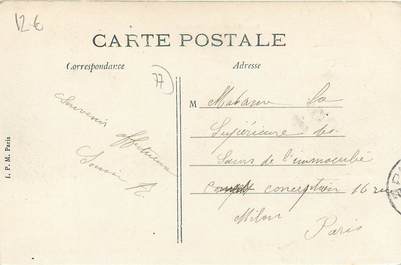 12€
CARTE POSTALE
Correspondance
Adresse
77
Souvenir
affectueux
M Madame la
Supérieure des
Sœurs de l'immaculée
conception 16 rue
Milton
Paris
I. P. M. Paris